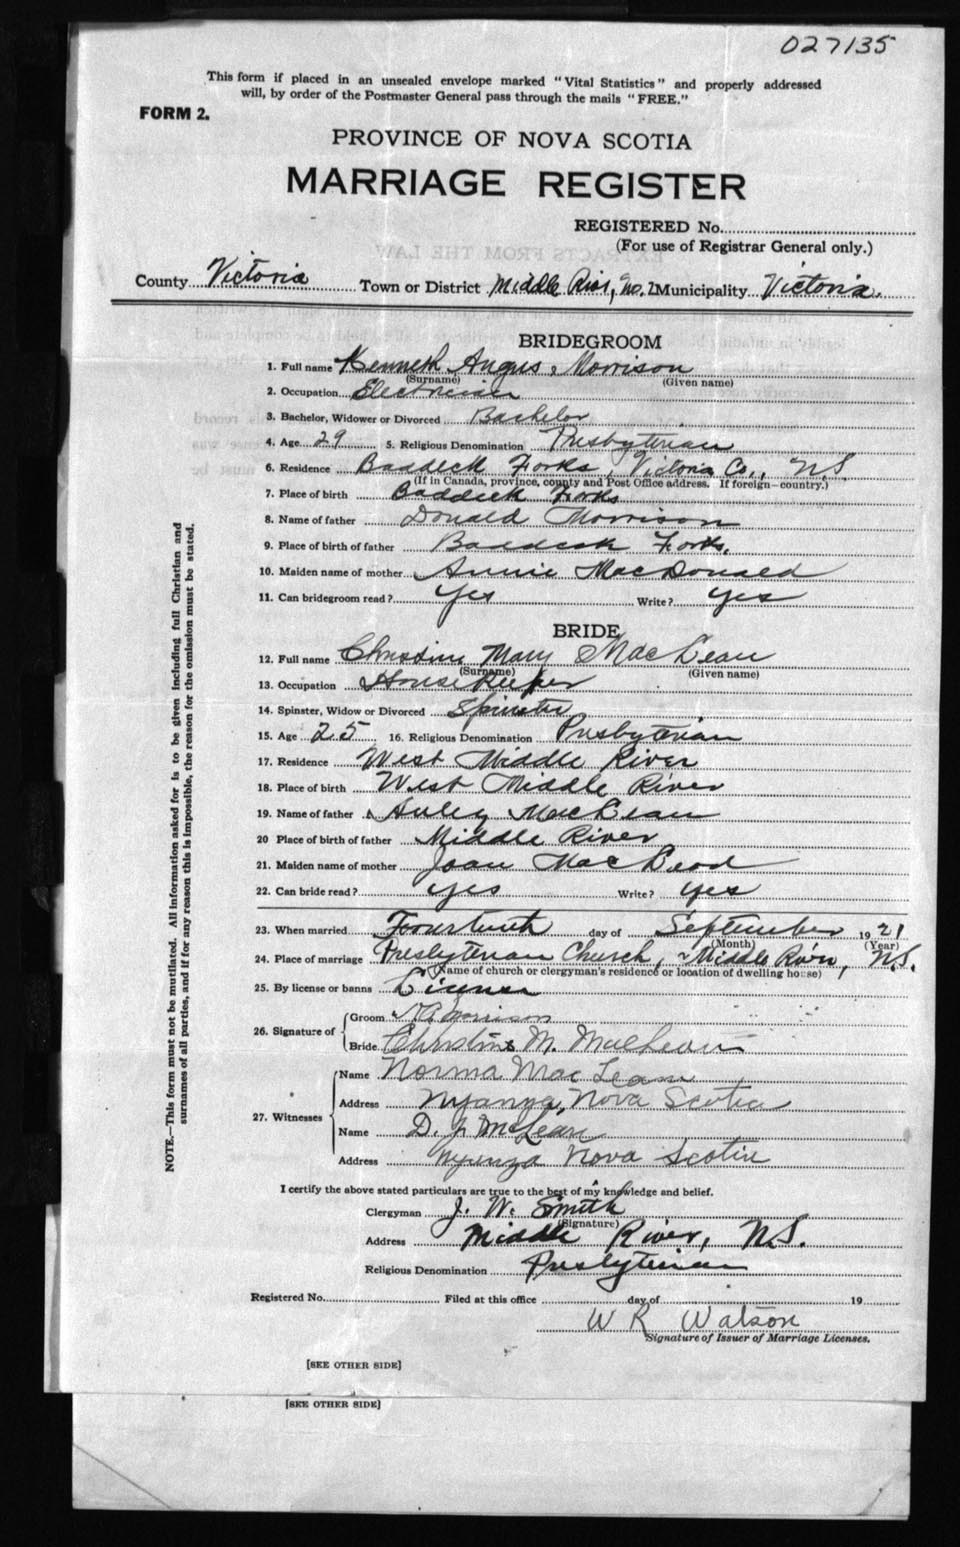 027135
This form if placed in an unsealed envelope marked "Vital Statistics" and properly addressed
will, by order of the Postmaster General pass through the mails "FREE."
FORM 2.
PROVINCE OF NOVA SCOTIA
MARRIAGE REGISTER
REGISTERED No.
(For use of Registrar General only.)
County Victoria Town or District Middle River, No. 2 Municipality Victoria.
BRIDEGROOM
1. Full name Kenneth Angus Morrison
(Surname) (Given name)
2. Occupation Electrician
3. Bachelor, Widower or Divorced Bachelor
4. Age 29 5. Religious Denomination Presbyterian
6. Residence Baddeck Forks, Victoria Co., N.S.
(If in Canada, province, county and Post Office address. If foreign—country.)
7. Place of birth Baddeck Forks
8. Name of father Donald Morrison
9. Place of birth of father Baddeck Forks.
10. Maiden name of mother Annie MacDonald
11. Can bridegroom read? Yes Write? Yes
BRIDE
12. Full name Christine Mary MacLean
(Surname) (Given name)
13. Occupation House Keeper
14. Spinster, Widow or Divorced Spinster
15. Age 25 16. Religious Denomination Presbyterian
17. Residence West Middle River
18. Place of birth West Middle River
19. Name of father Auley MacLean
20 Place of birth of father Middle River
21. Maiden name of mother Joan MacLeod
22. Can bride read? Yes Write? Yes
23. When married Fourteenth day of September 1921
(Month) (Year)
24. Place of marriage Presbyterian Church, Middle River, N.S.
(Name of church or clergyman's residence or location of dwelling house)
25. By license or banns License
26. Signature of
Groom K A Morrison
Bride Christine M. MacLean
27. Witnesses
Name Norma MacLean
Address Nyanza, Nova Scotia
Name D. J. McLean
Address Nyanza Nova Scotia
I certify the above stated particulars are true to the best of my knowledge and belief.
Clergyman J. W. Smith
(Signature)
Address Middle River, N.S.
Religious Denomination Presbyterian
Registered No. Filed at this office day of 19
W R Watson
Signature of Issuer of Marriage Licenses.
[SEE OTHER SIDE]
[SEE OTHER SIDE]
NOTE.—This form must not be mutilated. All information asked for is to be given including full Christian and
surnames of all parties, and if for any reason this is impossible, the reason for the omission must be stated.